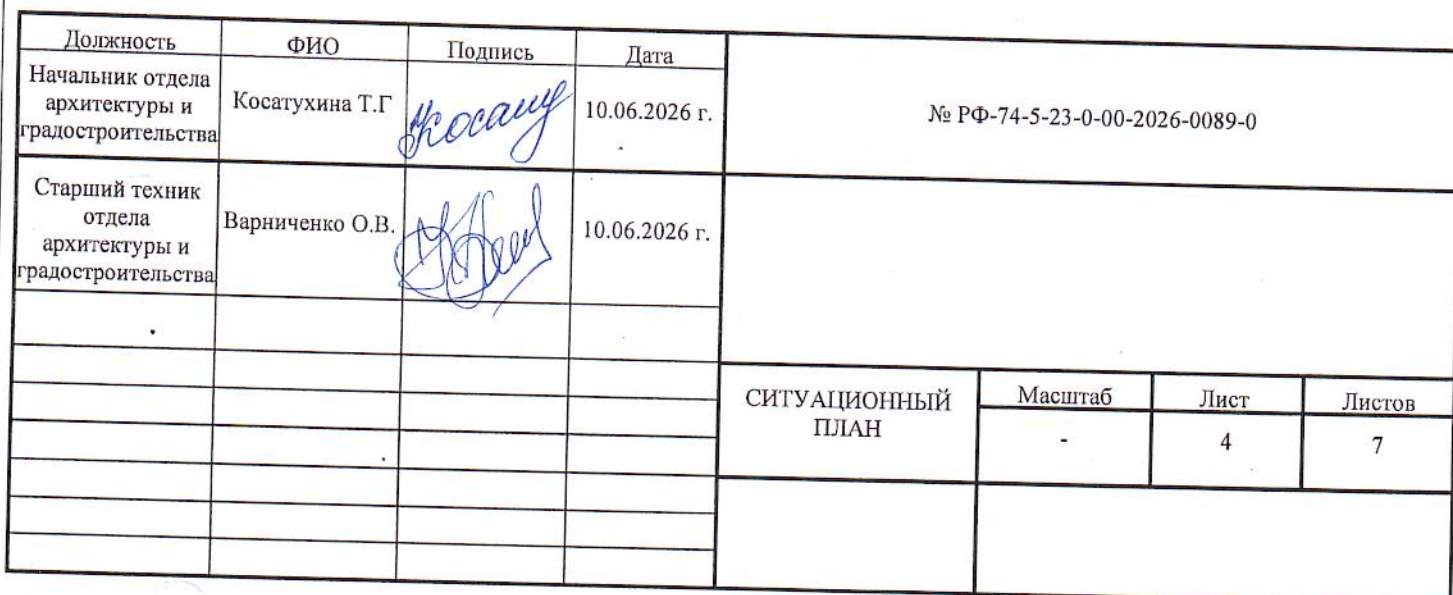 Должность ФИО Подпись Дата
Начальник отдела
архитектуры и
градостроительства
Косатухина Т.Г
Косату
10.06.2026 г.
№ РФ-74-5-23-0-00-2026-0089-0
Старший техник
отдела
архитектуры и
градостроительства
Варниченко О.В.
10.06.2026 г.
СИТУАЦИОННЫЙ
ПЛАН
Масштаб Лист Листов
- 4 7